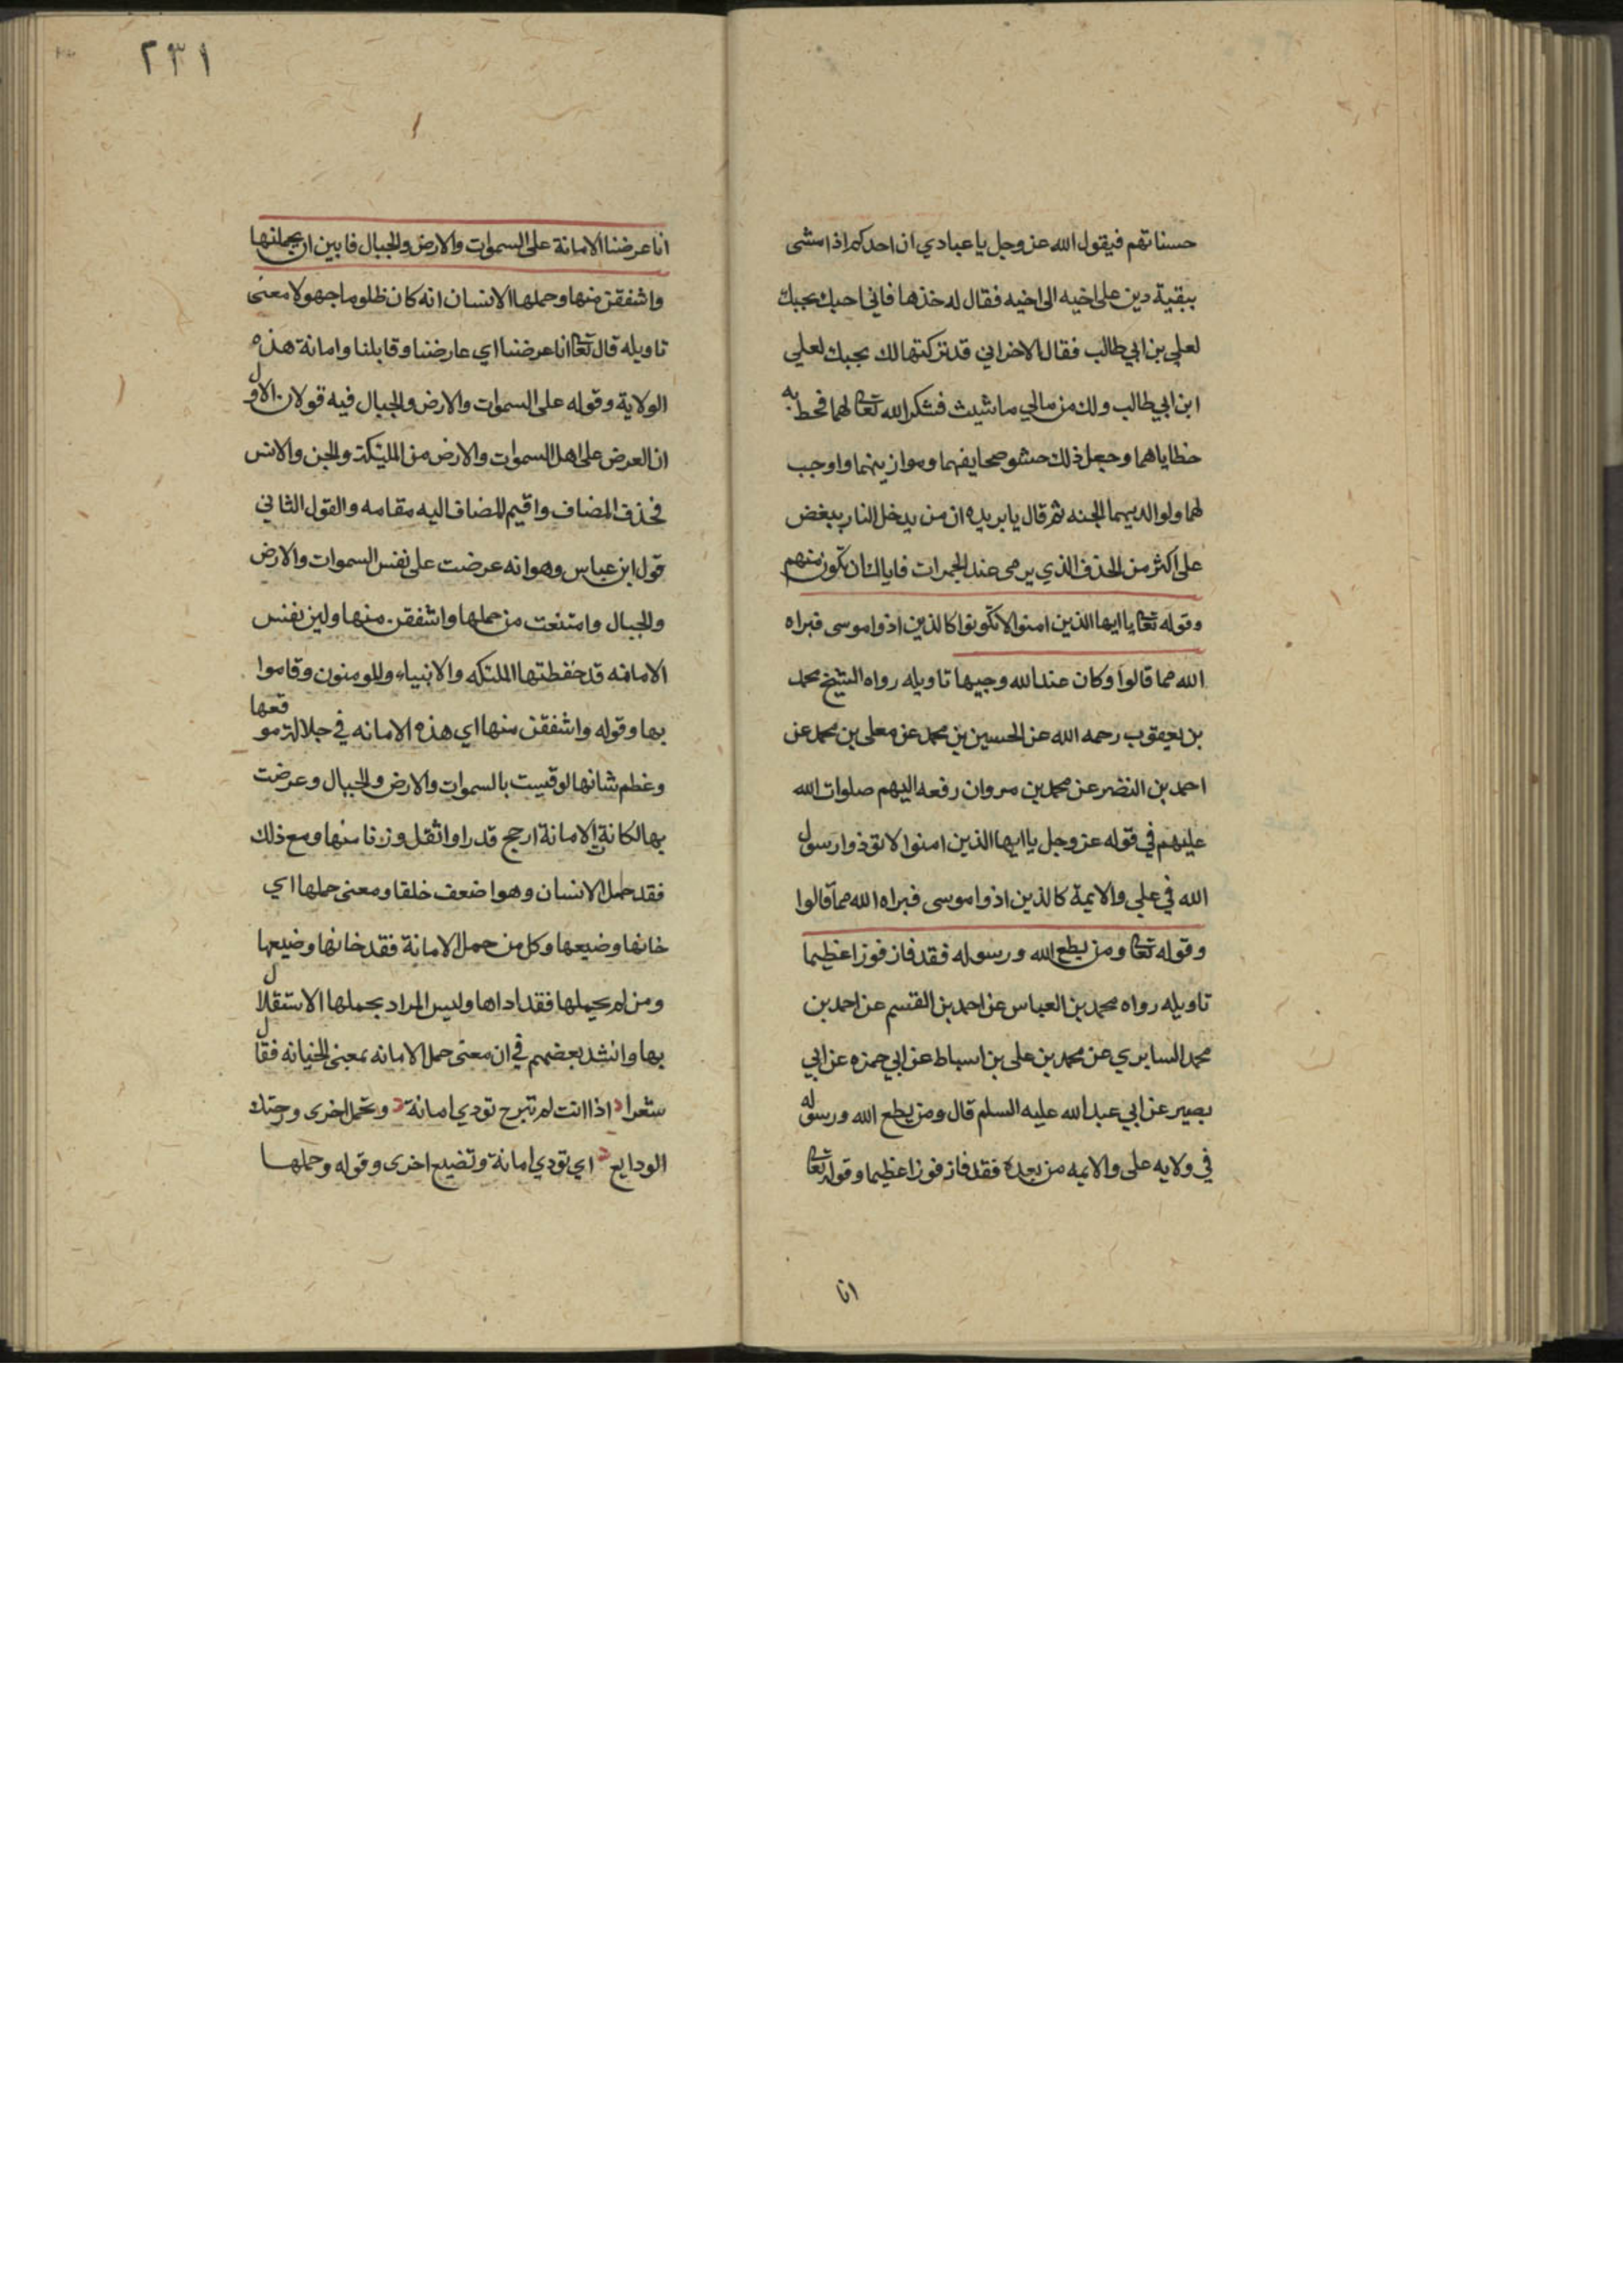 حسناتهم فيقول الله عز وجل يا عبادي ان احدكم اذا مشى
ببقية دين على اخيه الى اخيه فقال له خذها فاني احبك بحبك
لعلي بن ابي طالب فقال الاخر اني قد تركتها لك بحبك لعلي
ابن ابي طالب ولك من مالي ما شيت فشكر الله تعا لهما فحط به
خطاياهما وجعل ذلك حشو صحايفهما وموازينهما واوجب
لهما ولوالديهما الجنه ثم قال يا بريده ان من يدخل النار ببغض
علي اكثر من الخذف الذي يرمى عند الجمرات فاياك ان تكون منهم
وقوله تعا يا ايها الذين امنوا لا تكونوا كالذين اذوا موسى فبراه
الله مما قالوا وكان عند الله وجيها تاويله رواه الشيخ محمد
بن يعقوب رحمه الله عن الحسين بن محمد عن معلى بن محمد عن
احمد بن النضر عن محمد بن مروان رفعه اليهم صلوات الله
عليهم في قوله عز وجل يا ايها الذين امنوا لا توذوا رسول
الله في علي والايمة كالذين اذوا موسى فبراه الله مما قالوا
وقوله تعا ومن يطع الله ورسوله فقد فاز فوزا عظيما
تاويله رواه محمد بن العباس عن احمد بن القسم عن احمد بن
محمد السايري عن محمد بن علي بن اسباط عن ابي حمزه عن ابي
بصير عن ابي عبد الله عليه السلم قال ومن يطع الله ورسوله
في ولايه علي والايمه من بعده فقد فاز فوزا عظيما وقوله تعا
انا
٢٣١
انا عرضنا الامانة على السموات والارض والجبال فابين ان يحملنها
واشفقن منها وحملها الانسان انه كان ظلوما جهولا معنى
تاويله قال تعا انا عرضنا اي عارضنا وقابلنا وامانة هذه
الولاية وقوله على السموات والارض والجبال فيه قولان الاول
ان العرض على اهل السموات والارض من المليكة والجن والانس
فحذف المضاف واقيم المضاف اليه مقامه والقول الثاني
قول ابن عباس وهو انه عرضت على نفس السموات والارض
والجبال وامتنعت من حملها واشفقن منها ولين نفس
الامانه قد حفظتها الملئكه والانبياء والمومنون وقاموا
بها وقوله واشفقن منها اي هذه الامانه في جلالة موقعها
وعظم شانها لو قيست بالسموات والارض والجبال وعرضت
بها لكانة الامانة ارجح قدرا واثقل وزنا منها ومع ذلك
فقد حمل الانسان وهو اضعف خلقا ومعنى حملها اي
خانها وضيعها وكل من حمل الامانة فقد خانها وضيعها
ومن لم يحملها فقد اداها وليس المراد بحملها الاستقلال
بها وانشد بعضهم في ان معنى حمل الامانه بمعنى الخيانه فقال
شعرا اذا انت لم تبرح تودي امانة وتحمل اخرى وحتك
الودايع اي تودي امانة وتضيع اخرى وقوله وحملها